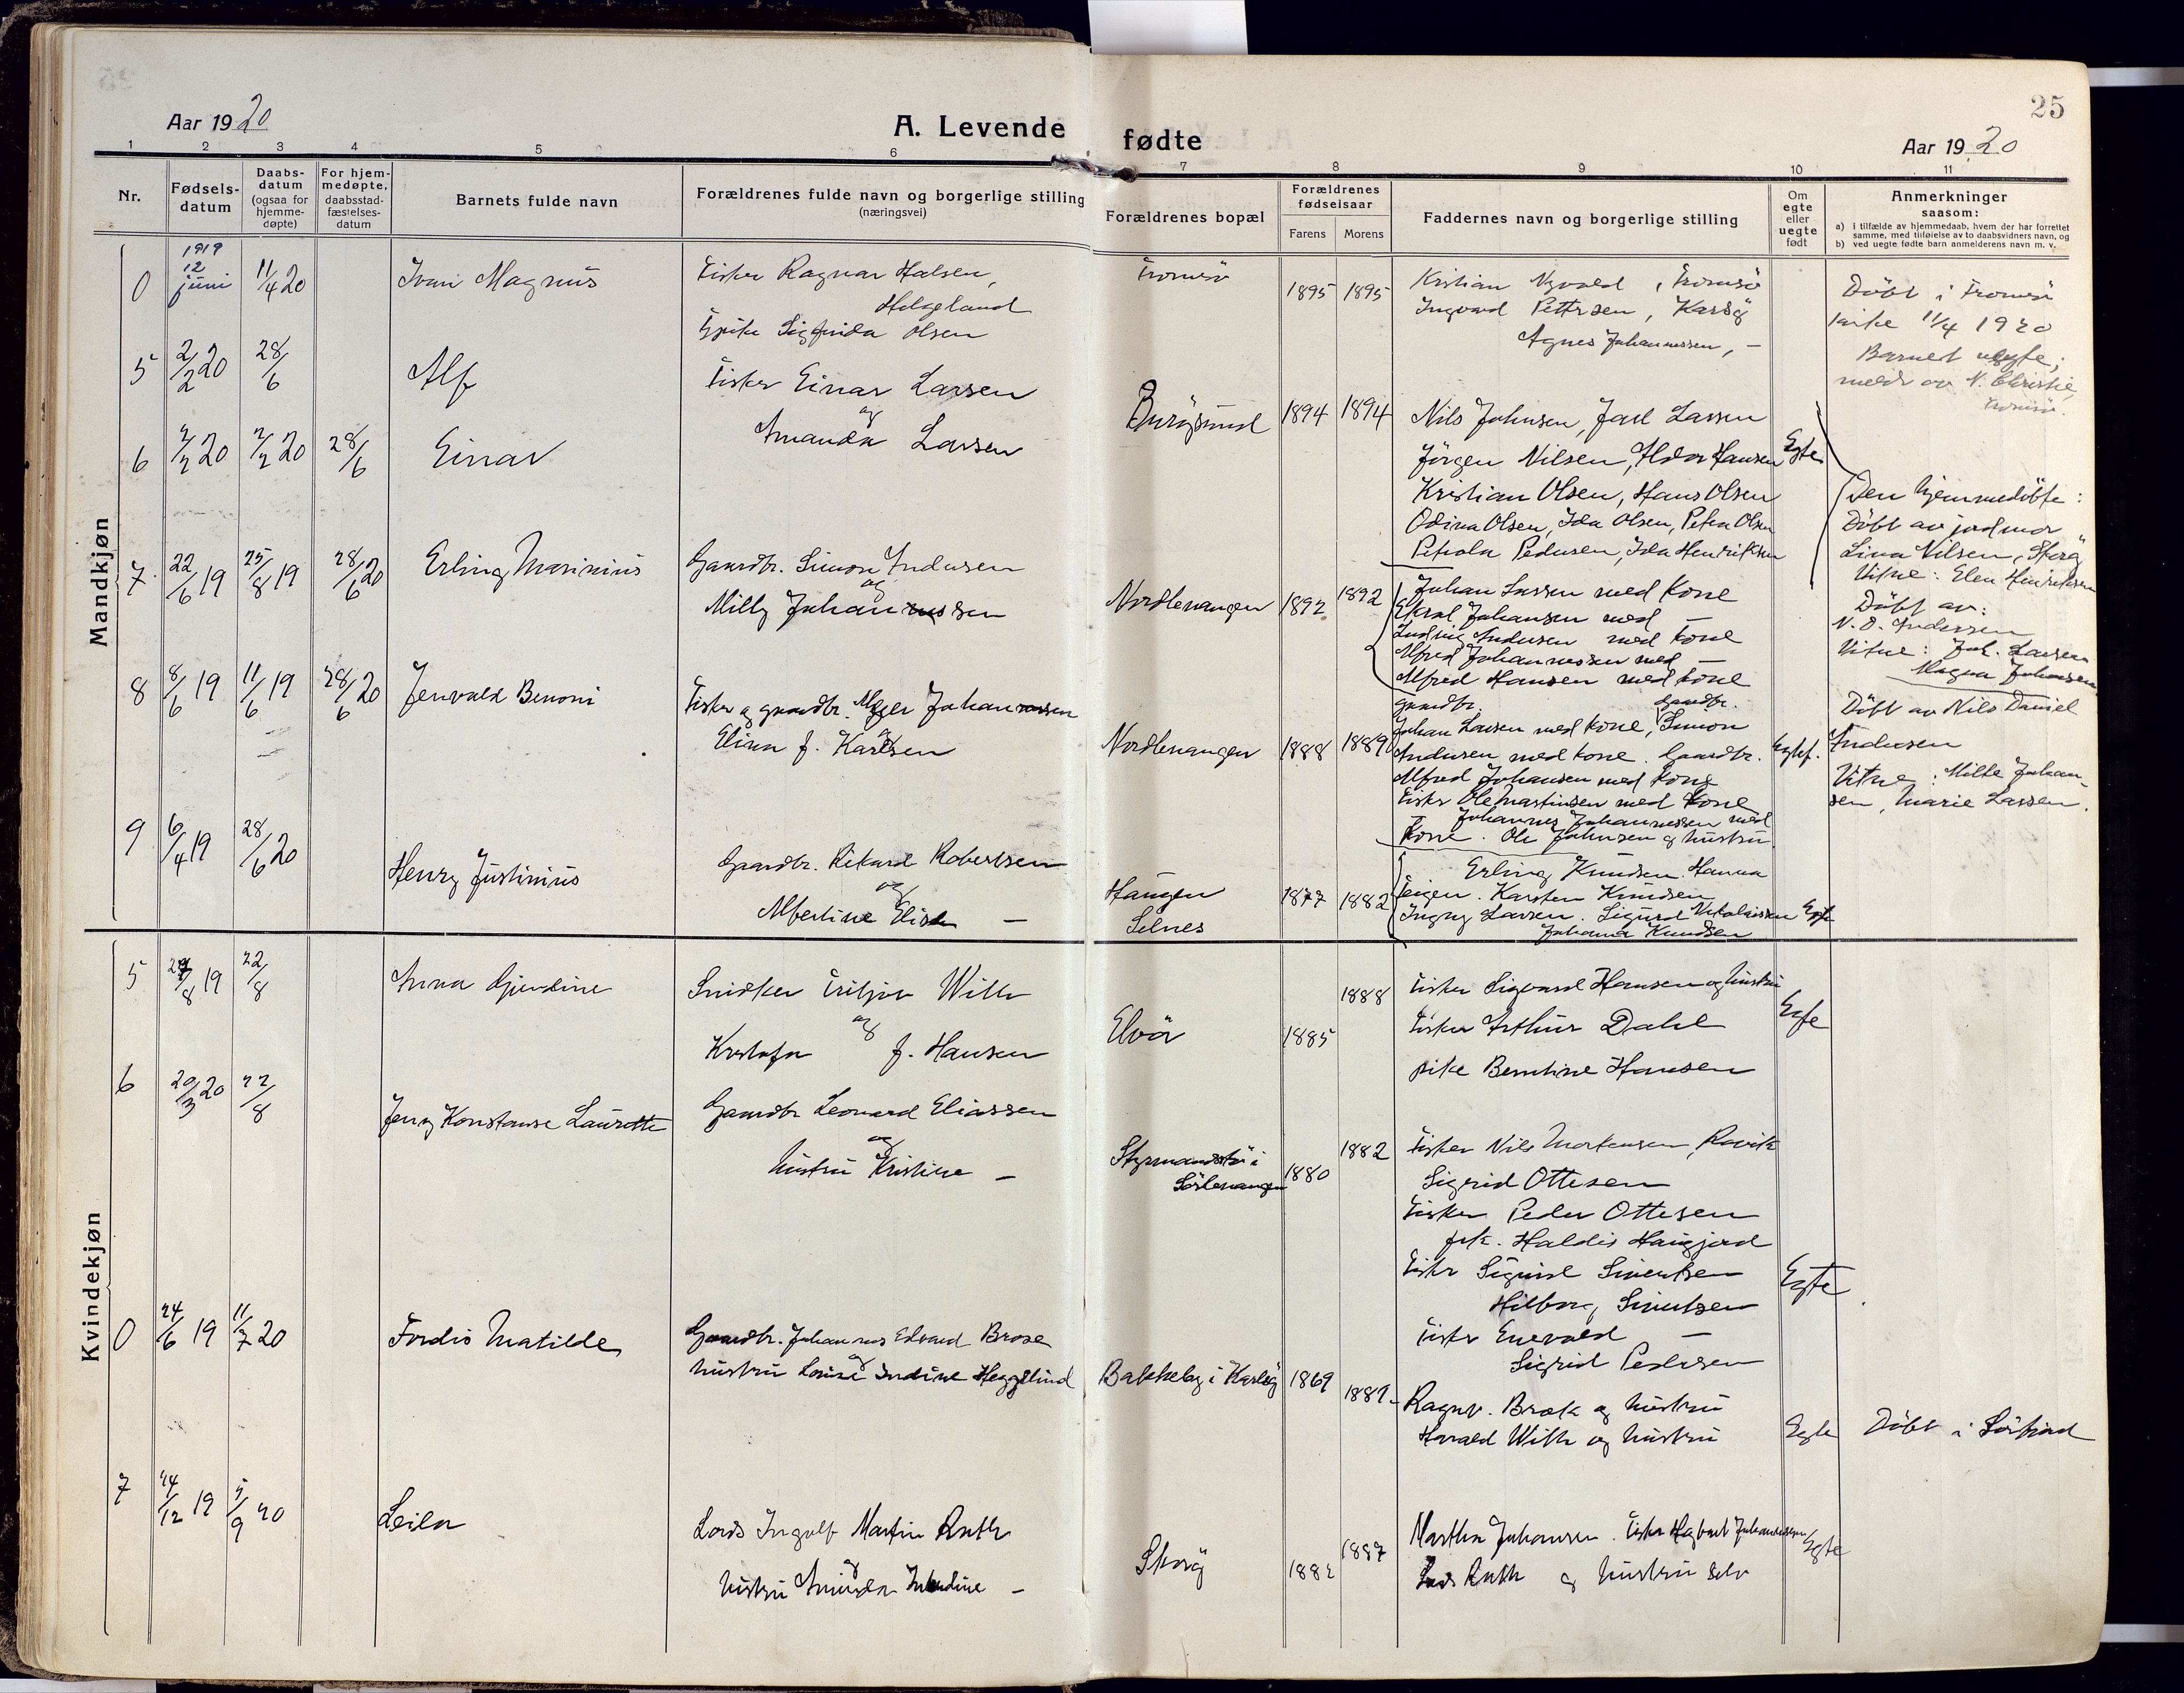 25
Aar 1920
A. Levende fødte
Aar 1920
1 2 3 4 5 6 7 8 9 10 11
Nr.
Fødsels-
datum
Daabs-
datum
(ogsaa for
hjemme-
døpte)
For hjem-
medøpte,
daabsstad-
fæstelses-
datum
Barnets fulde navn
Forældrenes fulde navn og borgerlige stilling
(næringsvei)
Forældrenes bopæl
Forældrenes
fødselsaar
Farens Morens
Faddernes navn og borgerlige stilling
Om
egte
eller
uegte
født
Anmerkninger
saasom:
a) i tilfælde av hjemmedaab, hvem der har forrettet
samme, med tilføielse av to daabsvidners navn, og
b) ved uegte fødte barn anmelderens navn m. v.
Mandkjøn
0 1919 12 juni 11/4 20 Ivan Magnus
Fisker Ragnar Halsen,
Helgeland
Sigfrida Olsen
Tromsø
1895 1895
Kristian , Tromsø
Ingvard Pettersen, Karlsø
Agnes Johannessen, —
Døbt i Tromsø
kirke 11/4 1920
Barnet uegte;
5 2/2 20 28/6 Alf
Fisker Einar Larsen
og
Amanda Larsen
6 2/2 20 2/2 20 28/6 Einar
1894 1894
Nils Johnsen, Larsen
Jörgen Nilsen, Hansen
Kristian Olsen, Hans Olsen
Odina Olsen, Ida Olsen, Petra Olsen
Pedersen, Ida Henriksen
Egte
Den hjemmedöbte:
Döbt av jordmor
Lina Nilsen,
Vitne: Elen Henriksen
7 22/6 19 25/8 19 28/6 20 Erling Marinius
Gaardbr. Simon Andersen
og
Milly Johannessen
Nordlenangen 1892 1892
Johan Larsen med kone
Johansen med —
Ludvig Andersen med kone
Alfred Johannessen med —
Alfred Hansen med kone
Döbt av:
Vitne: Joh. Larsen
Magna Johansen
8 8/6 19 11/6 19 28/6 20 Jenvald Benoni
Fisker og gaardbr. Johannessen
og
Elina f. Karlsen
Nordlenangen 1888 1889
gaardbr. Gaardbr.
Johan Larsen med kone, Simon
Andersen med kone. Gaardbr.
Alfred Johansen med kone
Fisker Ole Martinsen med kone
Johannes Johannessen med
kone. Ole Johnsen og hustru.
Egtef.
Döbt av Nils Daniel
Andersen
Vitne: Milte Johan-
sen, Marie Larsen.
9 6/4 19 28/6 20 Henry Justinius
Gaardbr. Rikard Robertsen
og
Albertine Elise —
Selnes
1877 1882
Erling Knudsen. Hanna
Karsten Knudsen
Larsen. Sigurd Nikolaisen
Johanna Knudsen
Egte
Kvindekjøn
5 /8 19 22/8 Anna Gjendine
Snidker Fritjov With
og
f. Hansen
1885 1888
Fisker Sigvard Hansen og hustru
Fisker Arthur Dahl
pike Berntine Hansen
Egte
6 20/3 20 22/8 Jenny Konstanse Laurette
Gaardbr Leonard Eliassen
og
hustru Kristine —
Sörlenangen
1880 1882
Fisker Nils Mortensen,
Sigrid Ottesen
Fisker Peder Ottesen
frk. Haldis Haugjord
Fisker Sigurd Sivertsen
Hilborg Sivertsen
Fisker Enevald —
Sigrid Pedersen
Egte
0 24/6 19 11/7 20 Fordis Matilde
Gaardbr. Johannes Edvard Brose
og
hustru Lovise Indine Heggelund
Bakkeby i Karlsöy 1869 1882
Ragnv. Bræk og hustru
Harald With og hustru
Egte
Döbt i Sörfjord
7 14/12 19 5/9 20 Leila
Lods Ingolf Martin Ruth
og
hustru —
1882 1887
Martha Johansen. Fisker
Lods Ruth og hustru selv
Egte